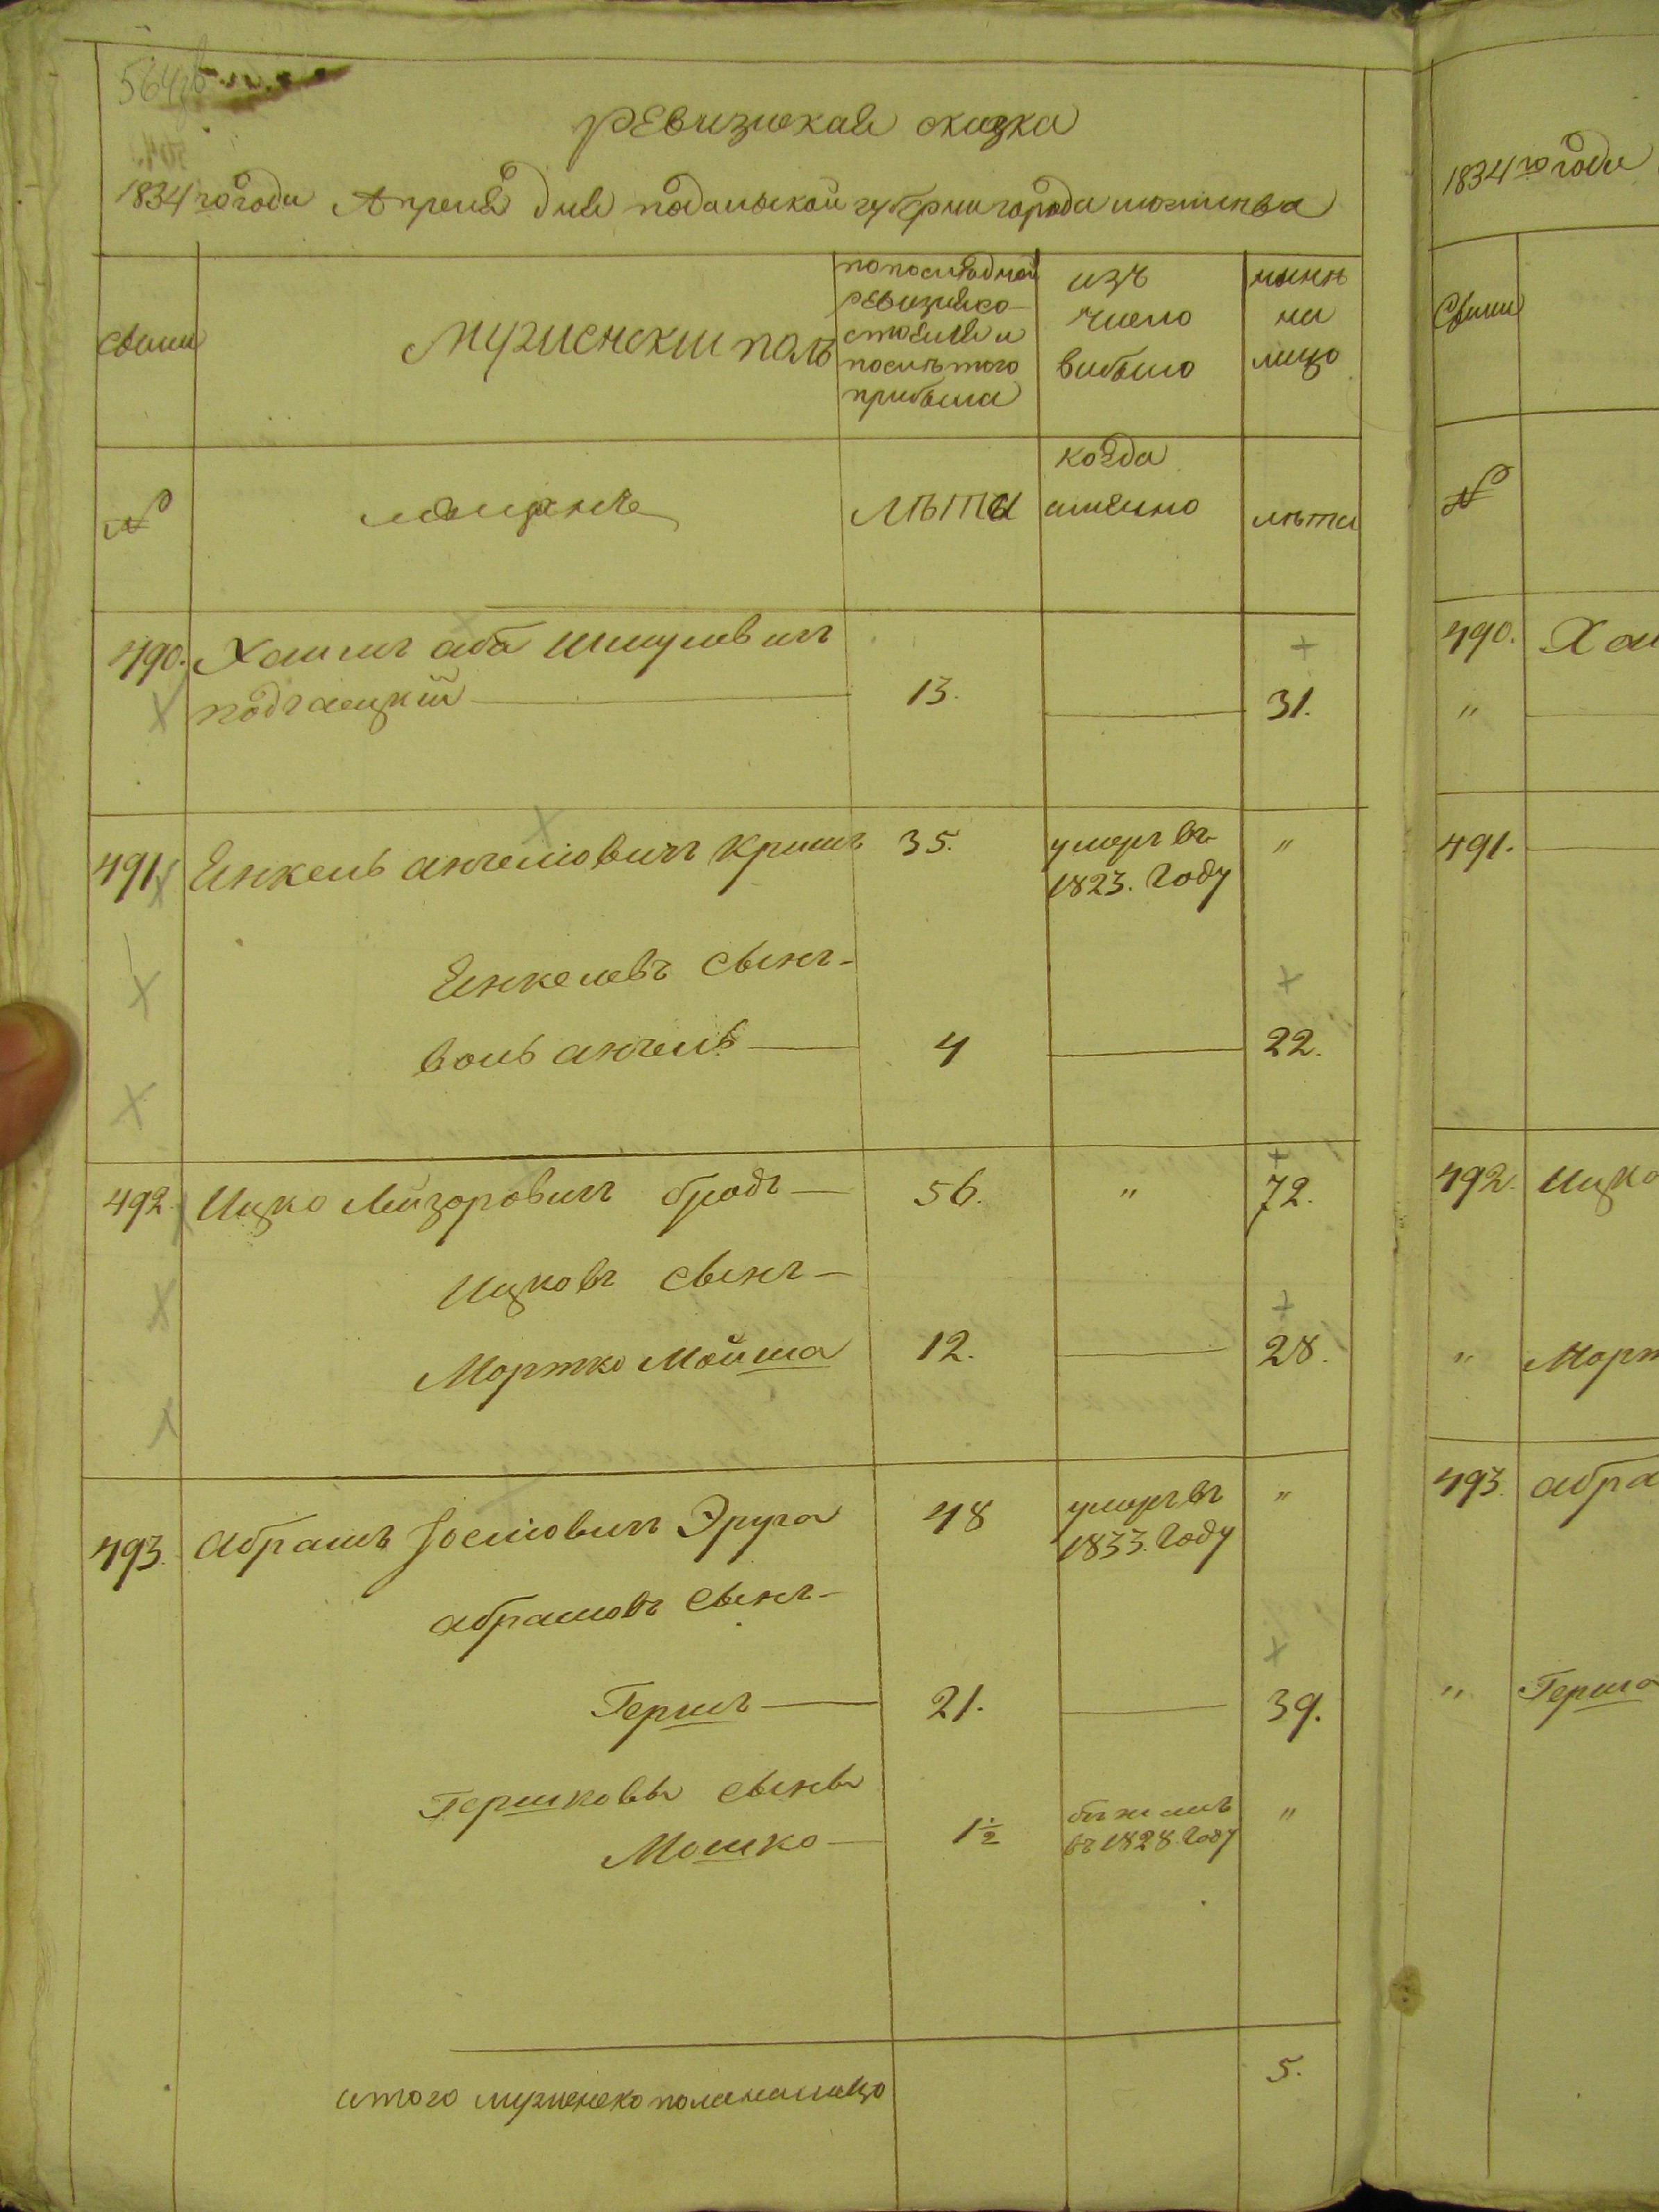 ревизская сказка
1834 го года Апреля дня подольской губернии города
Семьи
Мужеский полъ
попоследней
ревизии со-
стояли и
послѣ того
прибыла
изъ
число
выбыло
нынѣ
на
лицо
№
мещане
лѣта
когда
именно
лѣта
490. Хаимъ аба Шмулевичъ
подгаецкий 13. 31.
491 Енкель анчеловичъ Кримъ 35. умеръ въ "
1823. Году
Енкелевъ Сынъ-
воль анчель 4 22.
492. Ицко Лейзоровичъ бродъ 56. " 72.
Ицковъ Сынъ-
Мортко Мойша 12. 28.
493. Абрамъ Іосіовичъ Эруга 48 умеръ въ "
1833. Году
абрамовъ Сынъ-
Гершъ 21. 39.
Гершковы Сыны
Мошко 1½ "
въ 1828. Году
итого мужеско пола налицо 5.
1834 го года
Семьи
№
490. Хаи
"
491.
492. Ицко
" Морт
493. абра
" Герша